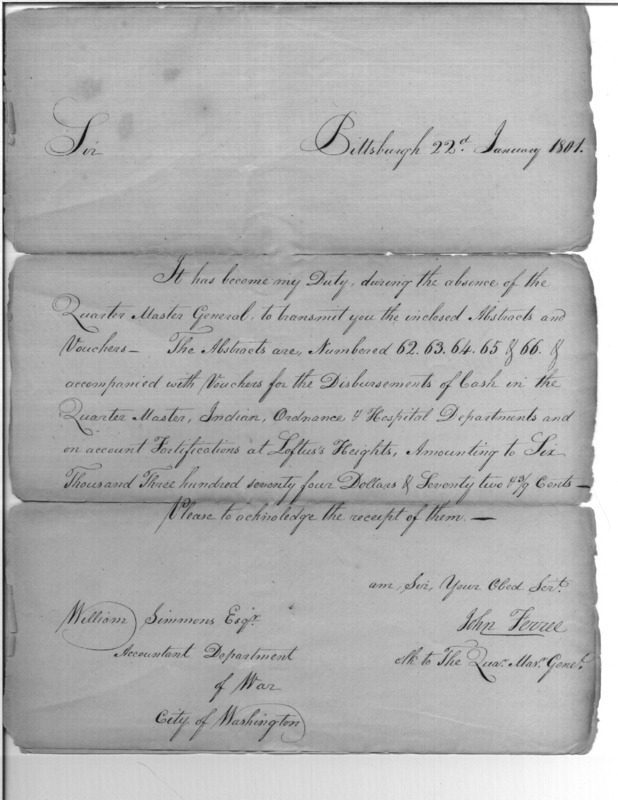 Sir Pittsburgh 22d. January 1801.
It has become my Duty, during the absence of the
Quarter Master General, to transmit you the inclosed Abstracts and
Vouchers — The Abstracts are, Numbered 62. 63. 64. 65 & 66. &
accompanied with Vouchers for the Disbursements of Cash in the
Quarter Master, Indian, Ordnance & Hospital Departments and
on account Fortifications at Loftus's Heights, Amounting to Six
Thousand Three hundred seventy four Dollars & Seventy two Cents —
Please to acknoledge the receipt of them. —
am, Sir, Your Obed Sert.
William Simmons Esqr. John Ferree
Accountant Department clk to The Quar. Mas. Genel.
of War
City of Washington